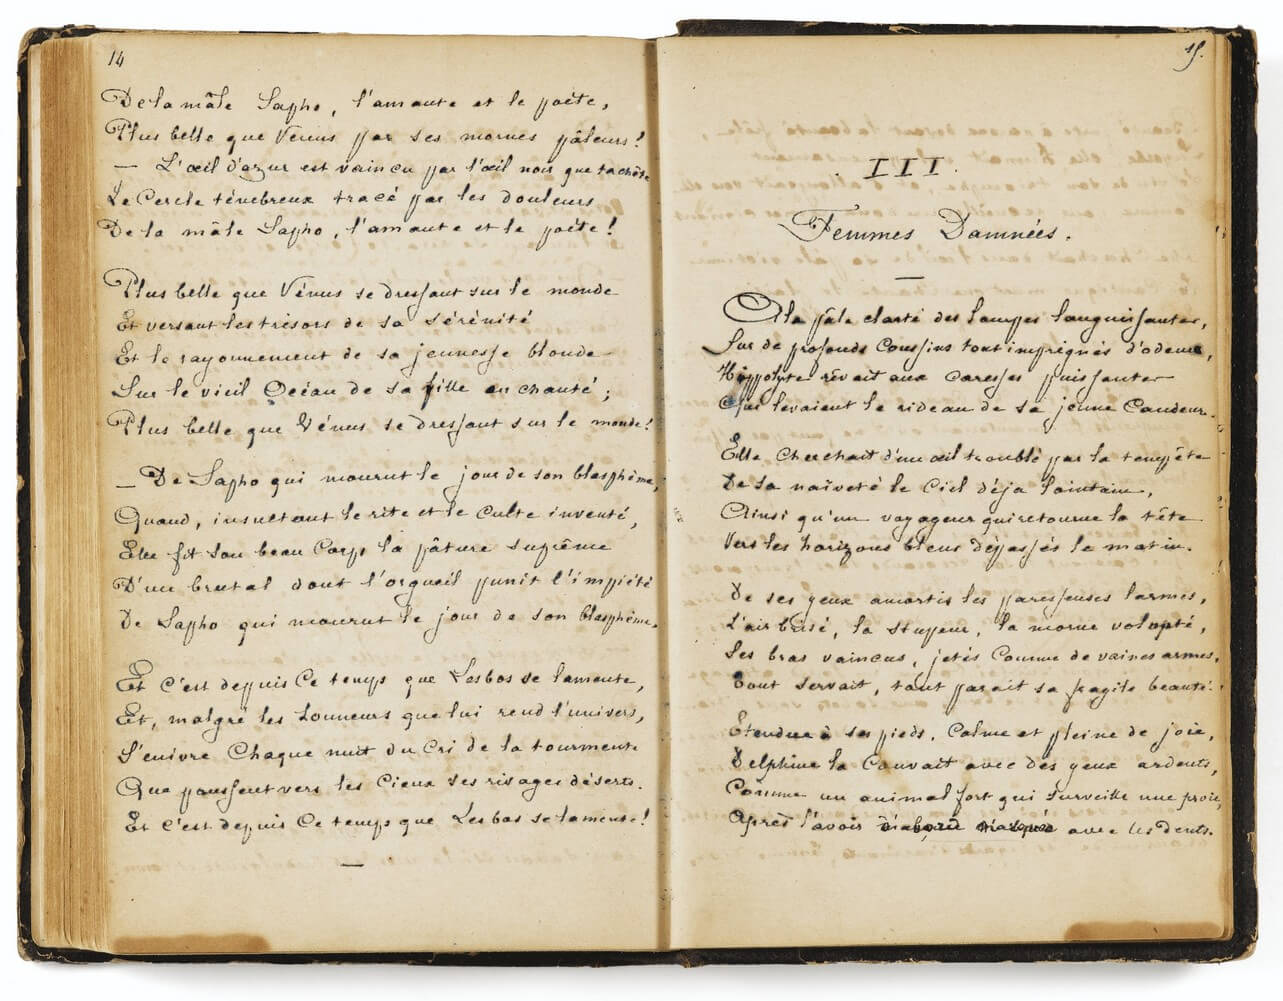 14
De la mâle Sapho, l'amante et le poète,
Plus belle que Vénus par ses mornes pâleurs!
— L'œil d'azur est vaincu par l'œil noir que tachète
Le Cercle ténébreux tracé par les douleurs
De la mâle Sapho, l'amante et le poète!
Plus belle que Vénus se dressant sur le monde
Et versant les trésors de sa sérénité
Et le rayonnement de sa jeunesse blonde
Sur le vieil Océan de sa fille enchanté;
Plus belle que Vénus se dressant sur le monde!
— De Sapho qui mourut le jour de son blasphème,
Quand, insultant le rite et le culte inventé,
Elle fit son beau Corps la pâture suprême
D'un brutal dont l'orgueil punit l'impiété
De Sapho qui mourut le jour de son blasphème.
Et c'est depuis Ce temps que Lesbos se lamente,
Et, malgré les honneurs que lui rend l'univers,
S'enivre Chaque nuit du Cri de la tourmente
Que poussent vers les Cieux ses rivages déserts.
Et C'est depuis Ce temps que Lesbos se lamente!
15.
III.
Femmes Damnées.
A la pâle clarté des lampes languissantes,
Sur de profonds Coussins tout imprégnés d'odeur,
Hippolyte rêvait aux Caresses puissantes
Qui levaient le rideau de sa jeune Candeur.
Elle Cherchait d'un œil troublé par la tempête
De sa naïveté le Ciel déja lointain,
Ainsi qu'un voyageur qui retourne la tête
Vers les horizons bleus dépassés le matin.
De ses yeux amortis les paresseuses larmes,
L'air brisé, la stupeur, la morne volupté,
Ses bras vaincus, jetés Comme de vaines armes,
Tout servait, tout parait sa fragile beauté.
Etendue à ses pieds, Calme et pleine de joie,
Delphine la Couvait avec des yeux ardents,
Comme un animal fort qui surveille une proie,
Après l'avoir d'abord marquée avec les dents.